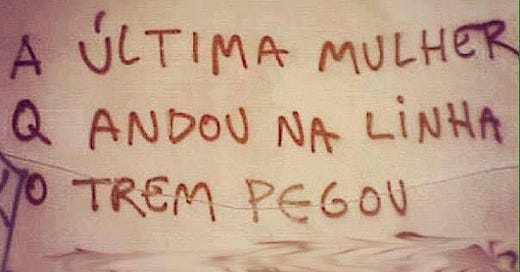 A ÚLTIMA MULHER
Q ANDOU NA LINHA
O TREM PEGOU